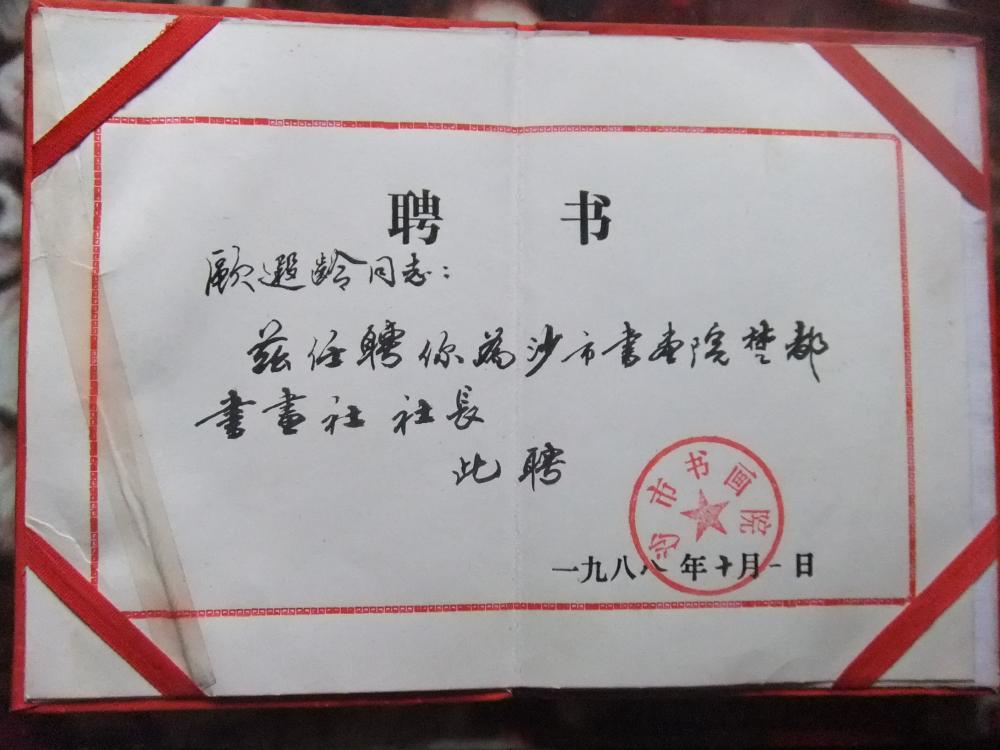 聘书
欧遐龄同志：
兹任聘你為沙市書画院楚都
書畫社社長
此聘
沙市书画院
一九八八年十月一日